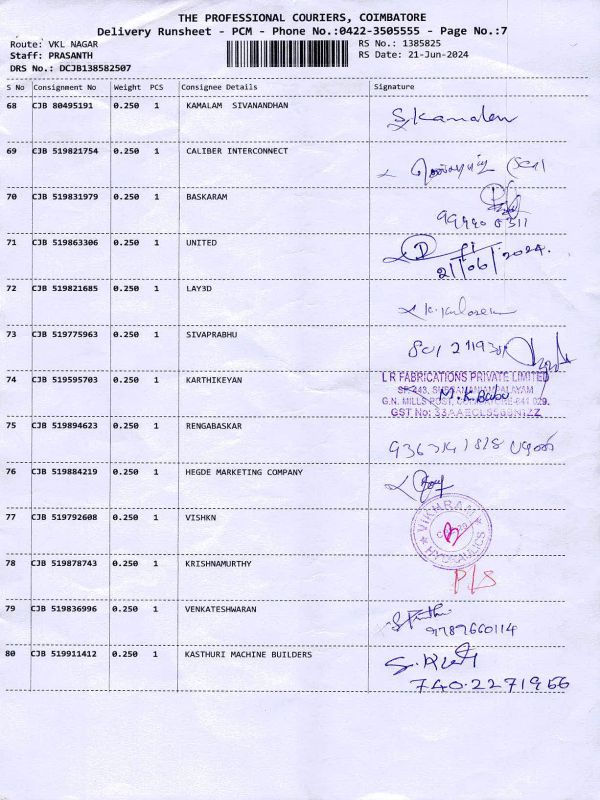 THE PROFESSIONAL COURIERS, COIMBATORE
Delivery Runsheet - PCM - Phone No.:0422-3505555 - Page No.:7
Route: VKL NAGAR
Staff: PRASANTH
DRS No.: DCJB138582507
RS No.: 1385825
RS Date: 21-Jun-2024
S No Consignment No Weight PCS Consignee Details Signature
68 CJB 80495191 0.250 1 KAMALAM SIVANANDHAN S. Kamalam
69 CJB 519821754 0.250 1 CALIBER INTERCONNECT
70 CJB 519831979 0.250 1 BASKARAM
71 CJB 519863306 0.250 1 UNITED 21/06/2024.
72 CJB 519821685 0.250 1 LAY3D
73 CJB 519775963 0.250 1 SIVAPRABHU
74 CJB 519595703 0.250 1 KARTHIKEYAN
L R FABRICATIONS PRIVATE LIMITED
M.K. Babu
G.N. MILLS POST, COIMBATORE-641 029.
GST No:
75 CJB 519894623 0.250 1 RENGABASKAR
76 CJB 519884219 0.250 1 HEGDE MARKETING COMPANY
77 CJB 519792608 0.250 1 VISHKN
VIKHRAM HYDRAULICS
78 CJB 519878743 0.250 1 KRISHNAMURTHY P/S
79 CJB 519836996 0.250 1 VENKATESHWARAN
9789660114
80 CJB 519911412 0.250 1 KASTHURI MACHINE BUILDERS
740.2271956